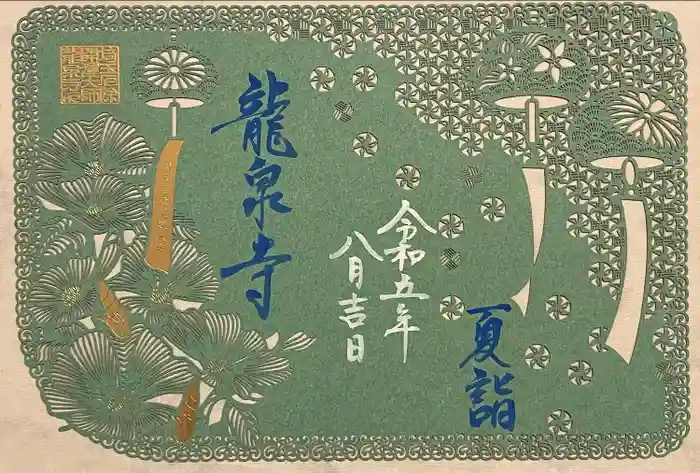 夏詣
令和五年
八月吉日
龍泉寺